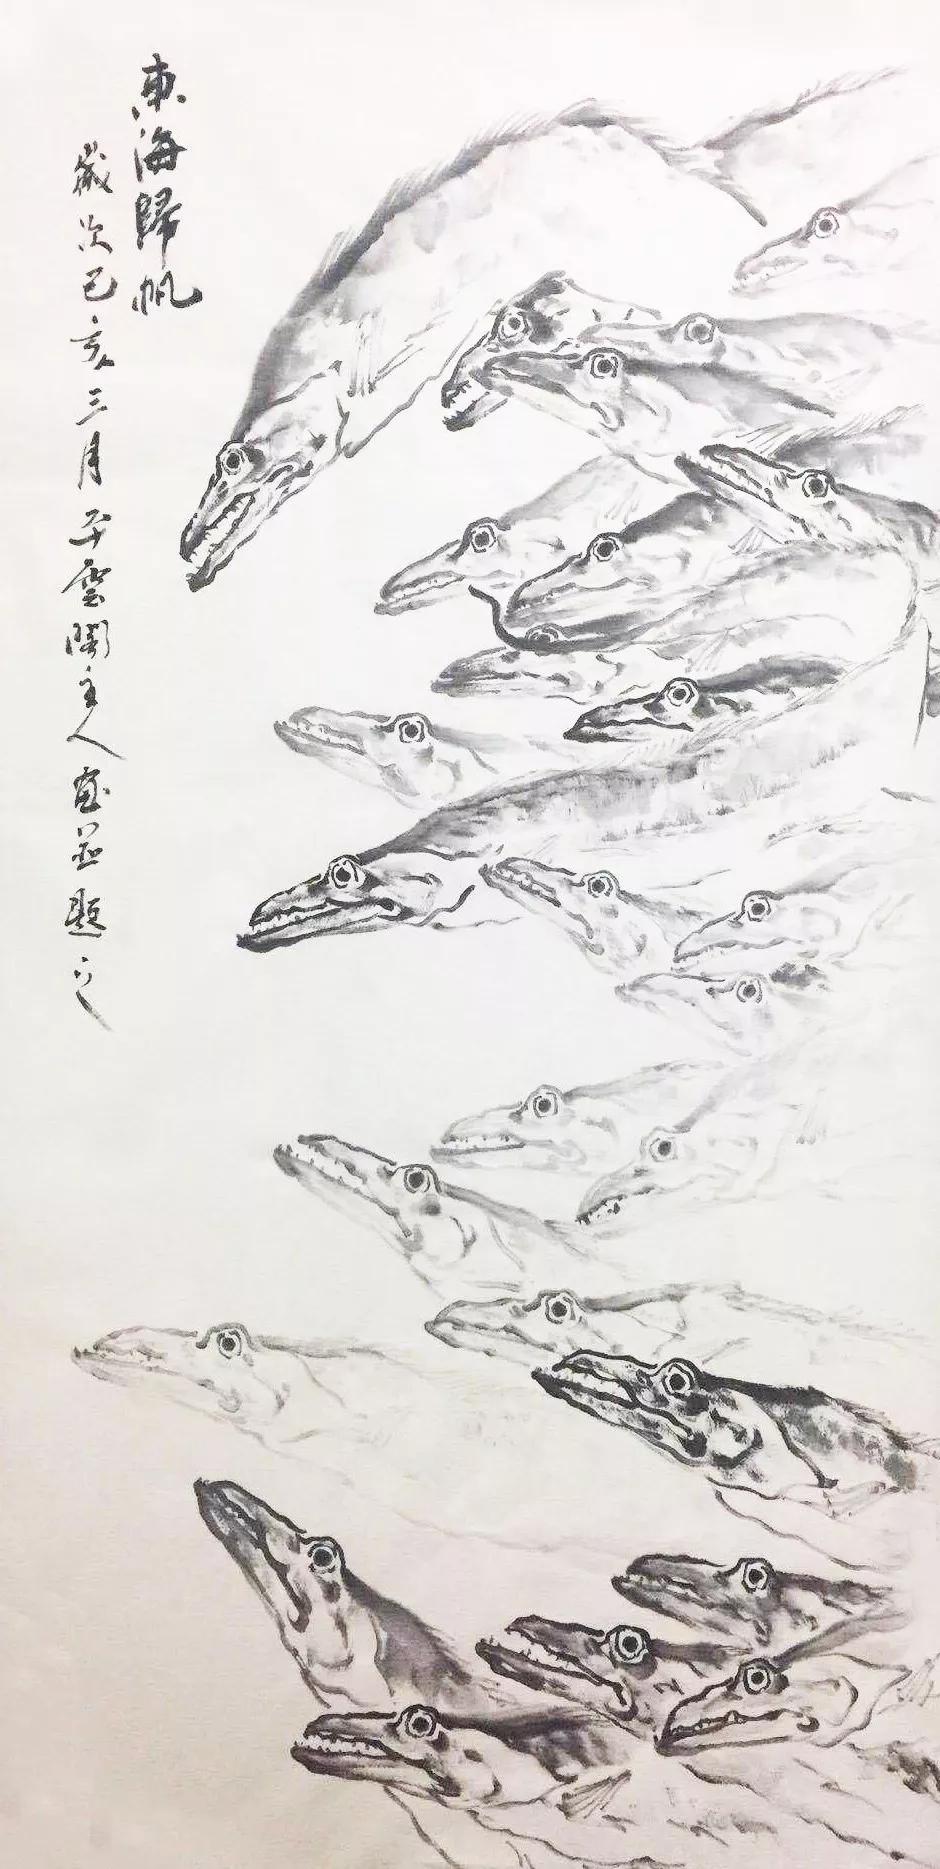 東海歸帆
歲次己亥三月子雲閣主人畫并題之